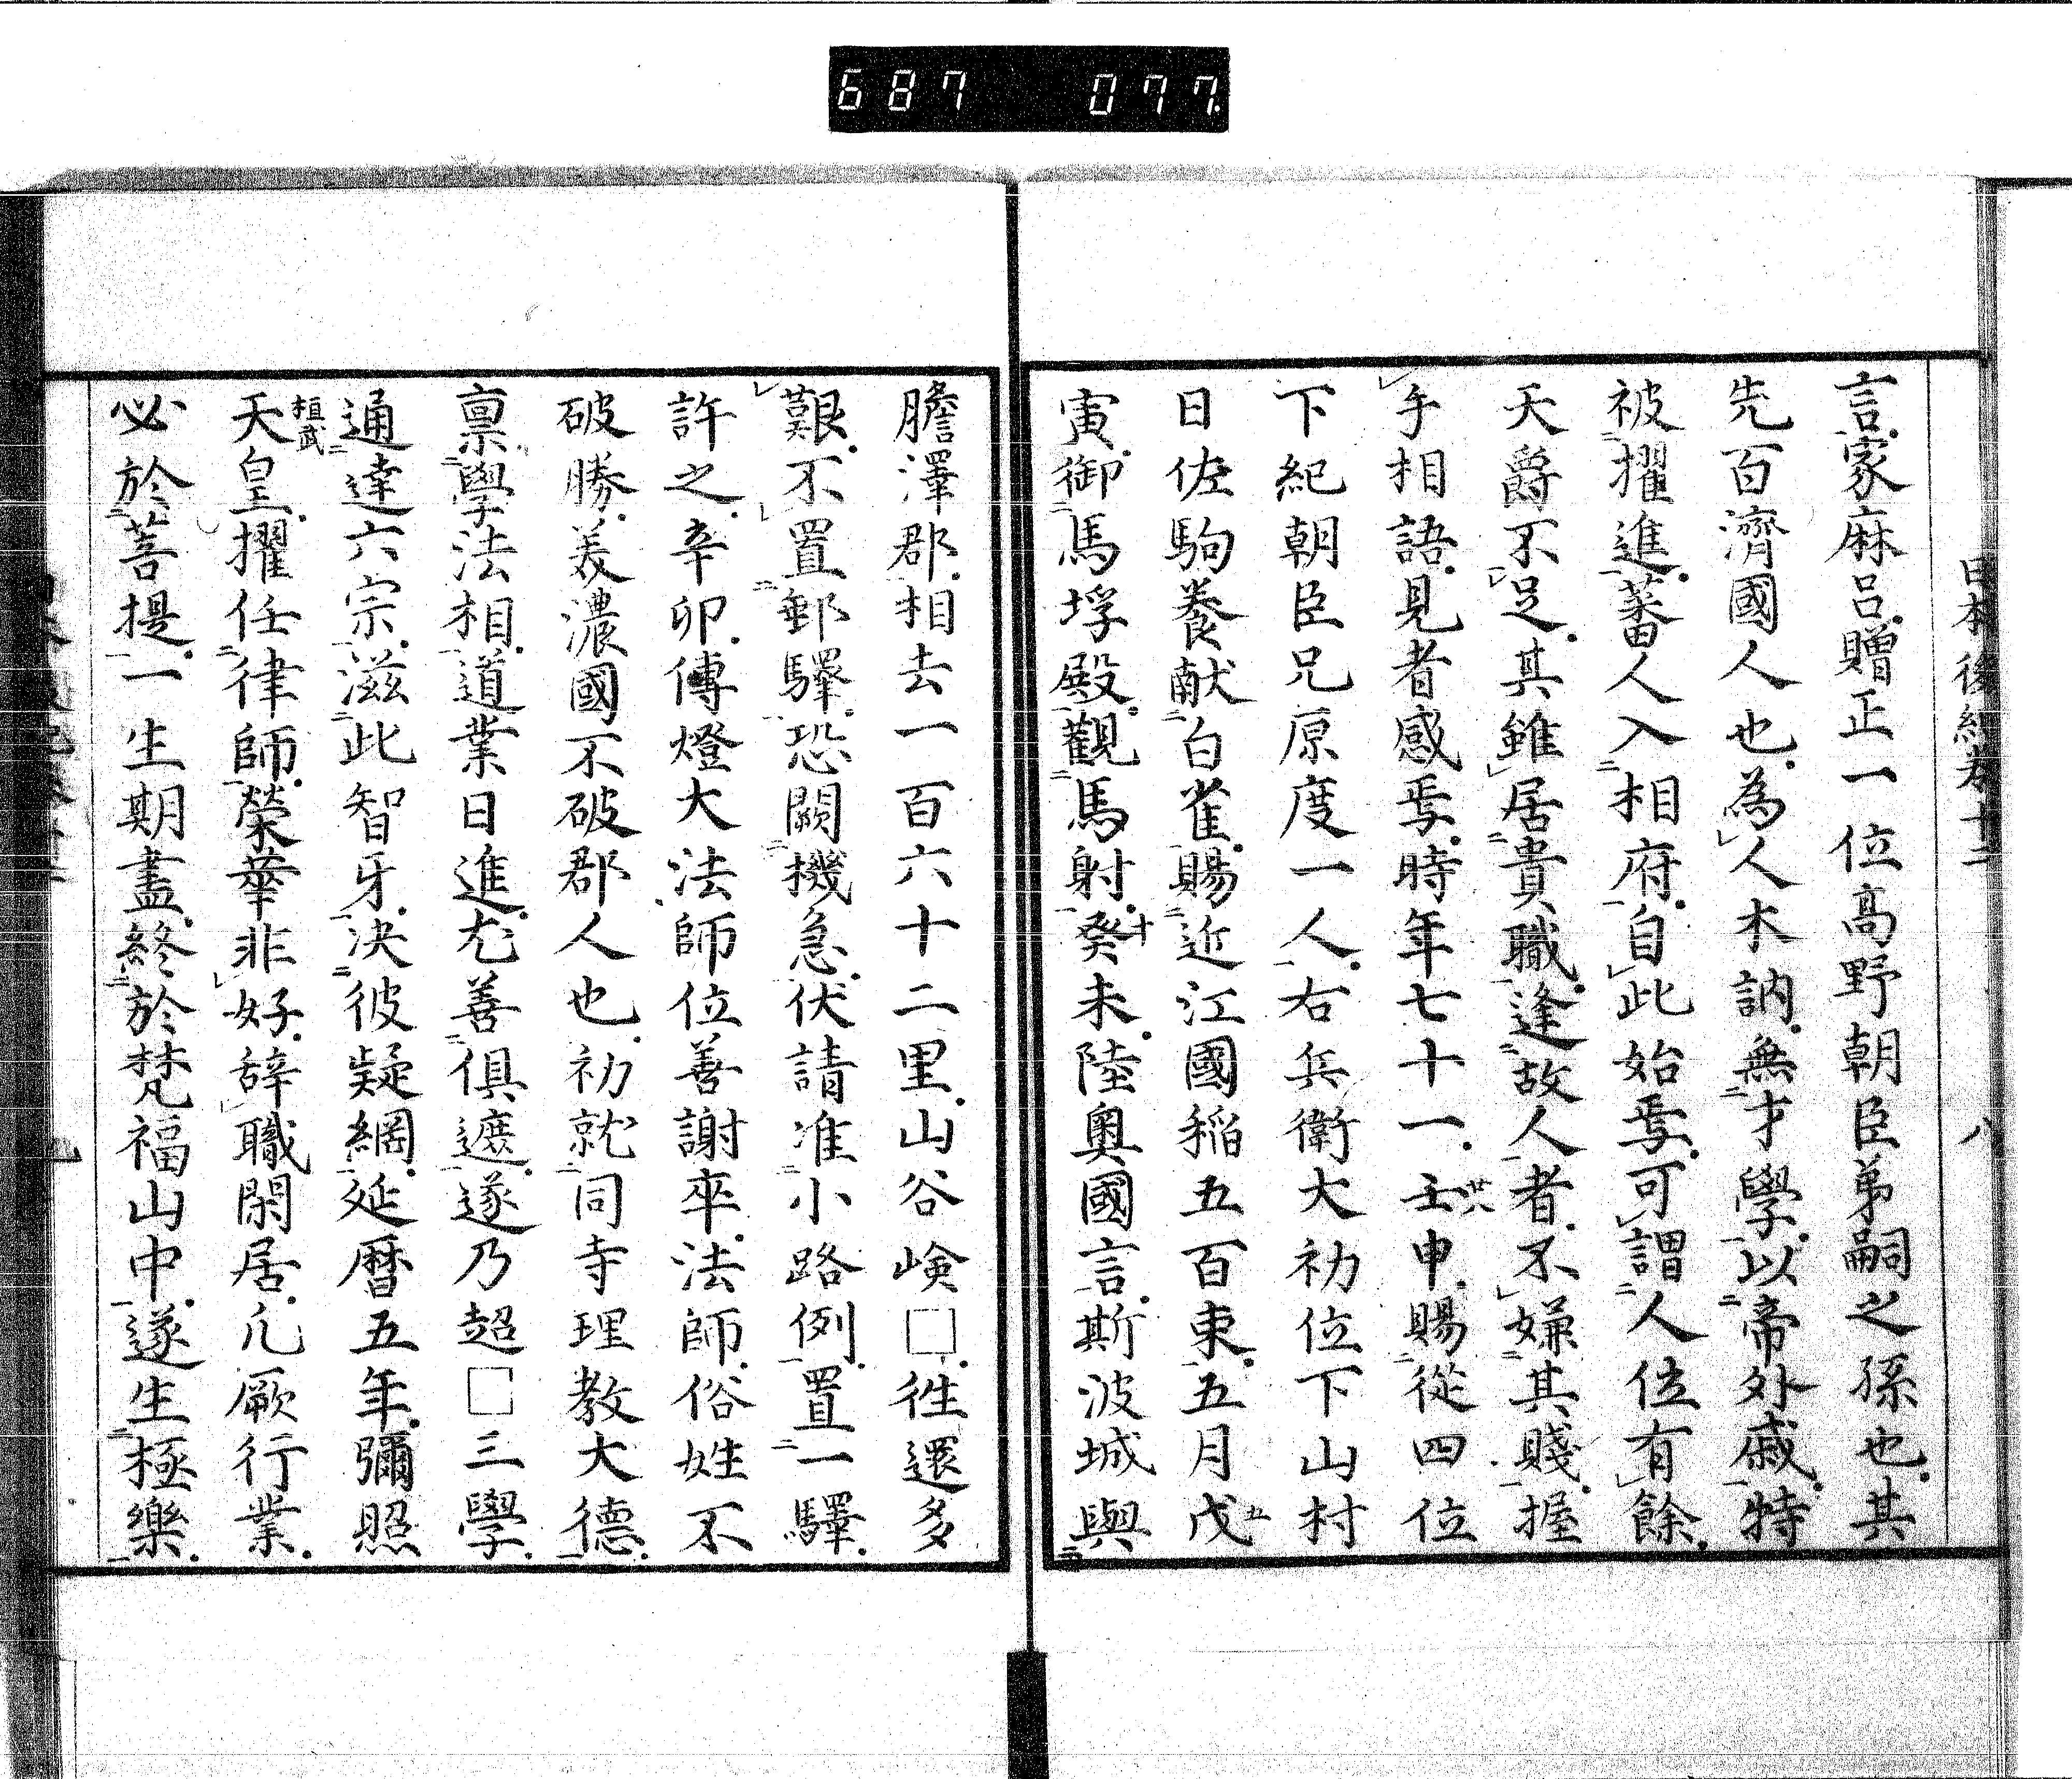 687 077.
日本後紀卷十二 八
言家麻呂贈正一位高野朝臣弟嗣之孫也其
先百濟國人也為人木訥無才學以帝外戚特
被擢進蕃人入相府自此始焉可謂人位有餘
天爵不足其雖居貴職逢故人者不嫌其賤握
手相語見者感焉時年七十一壬申賜從四位
廿六
下紀朝臣兄原度一人右兵衛大初位下山村
日佐駒養献白雀賜近江國稲五百束五月戊
五
寅御馬埓殿觀馬射癸未陸奧國言斯波城與
十
膽澤郡相去一百六十二里山谷嶮□徃還多
艱不置郵驛恐闕機急伏請准小路例置一驛
許之辛卯傳燈大法師位善謝卒法師俗姓不
破勝美濃國不破郡人也初就同寺理教大德
稟學法相道業日進尤善俱遮遂乃超□三學
通達六宗滋此智牙决彼疑網延暦五年彌照
桓武
天皇擢任律師榮華非好辞職閑居凢厥行業
必於菩提一生期盡終於梵福山中遂生極樂